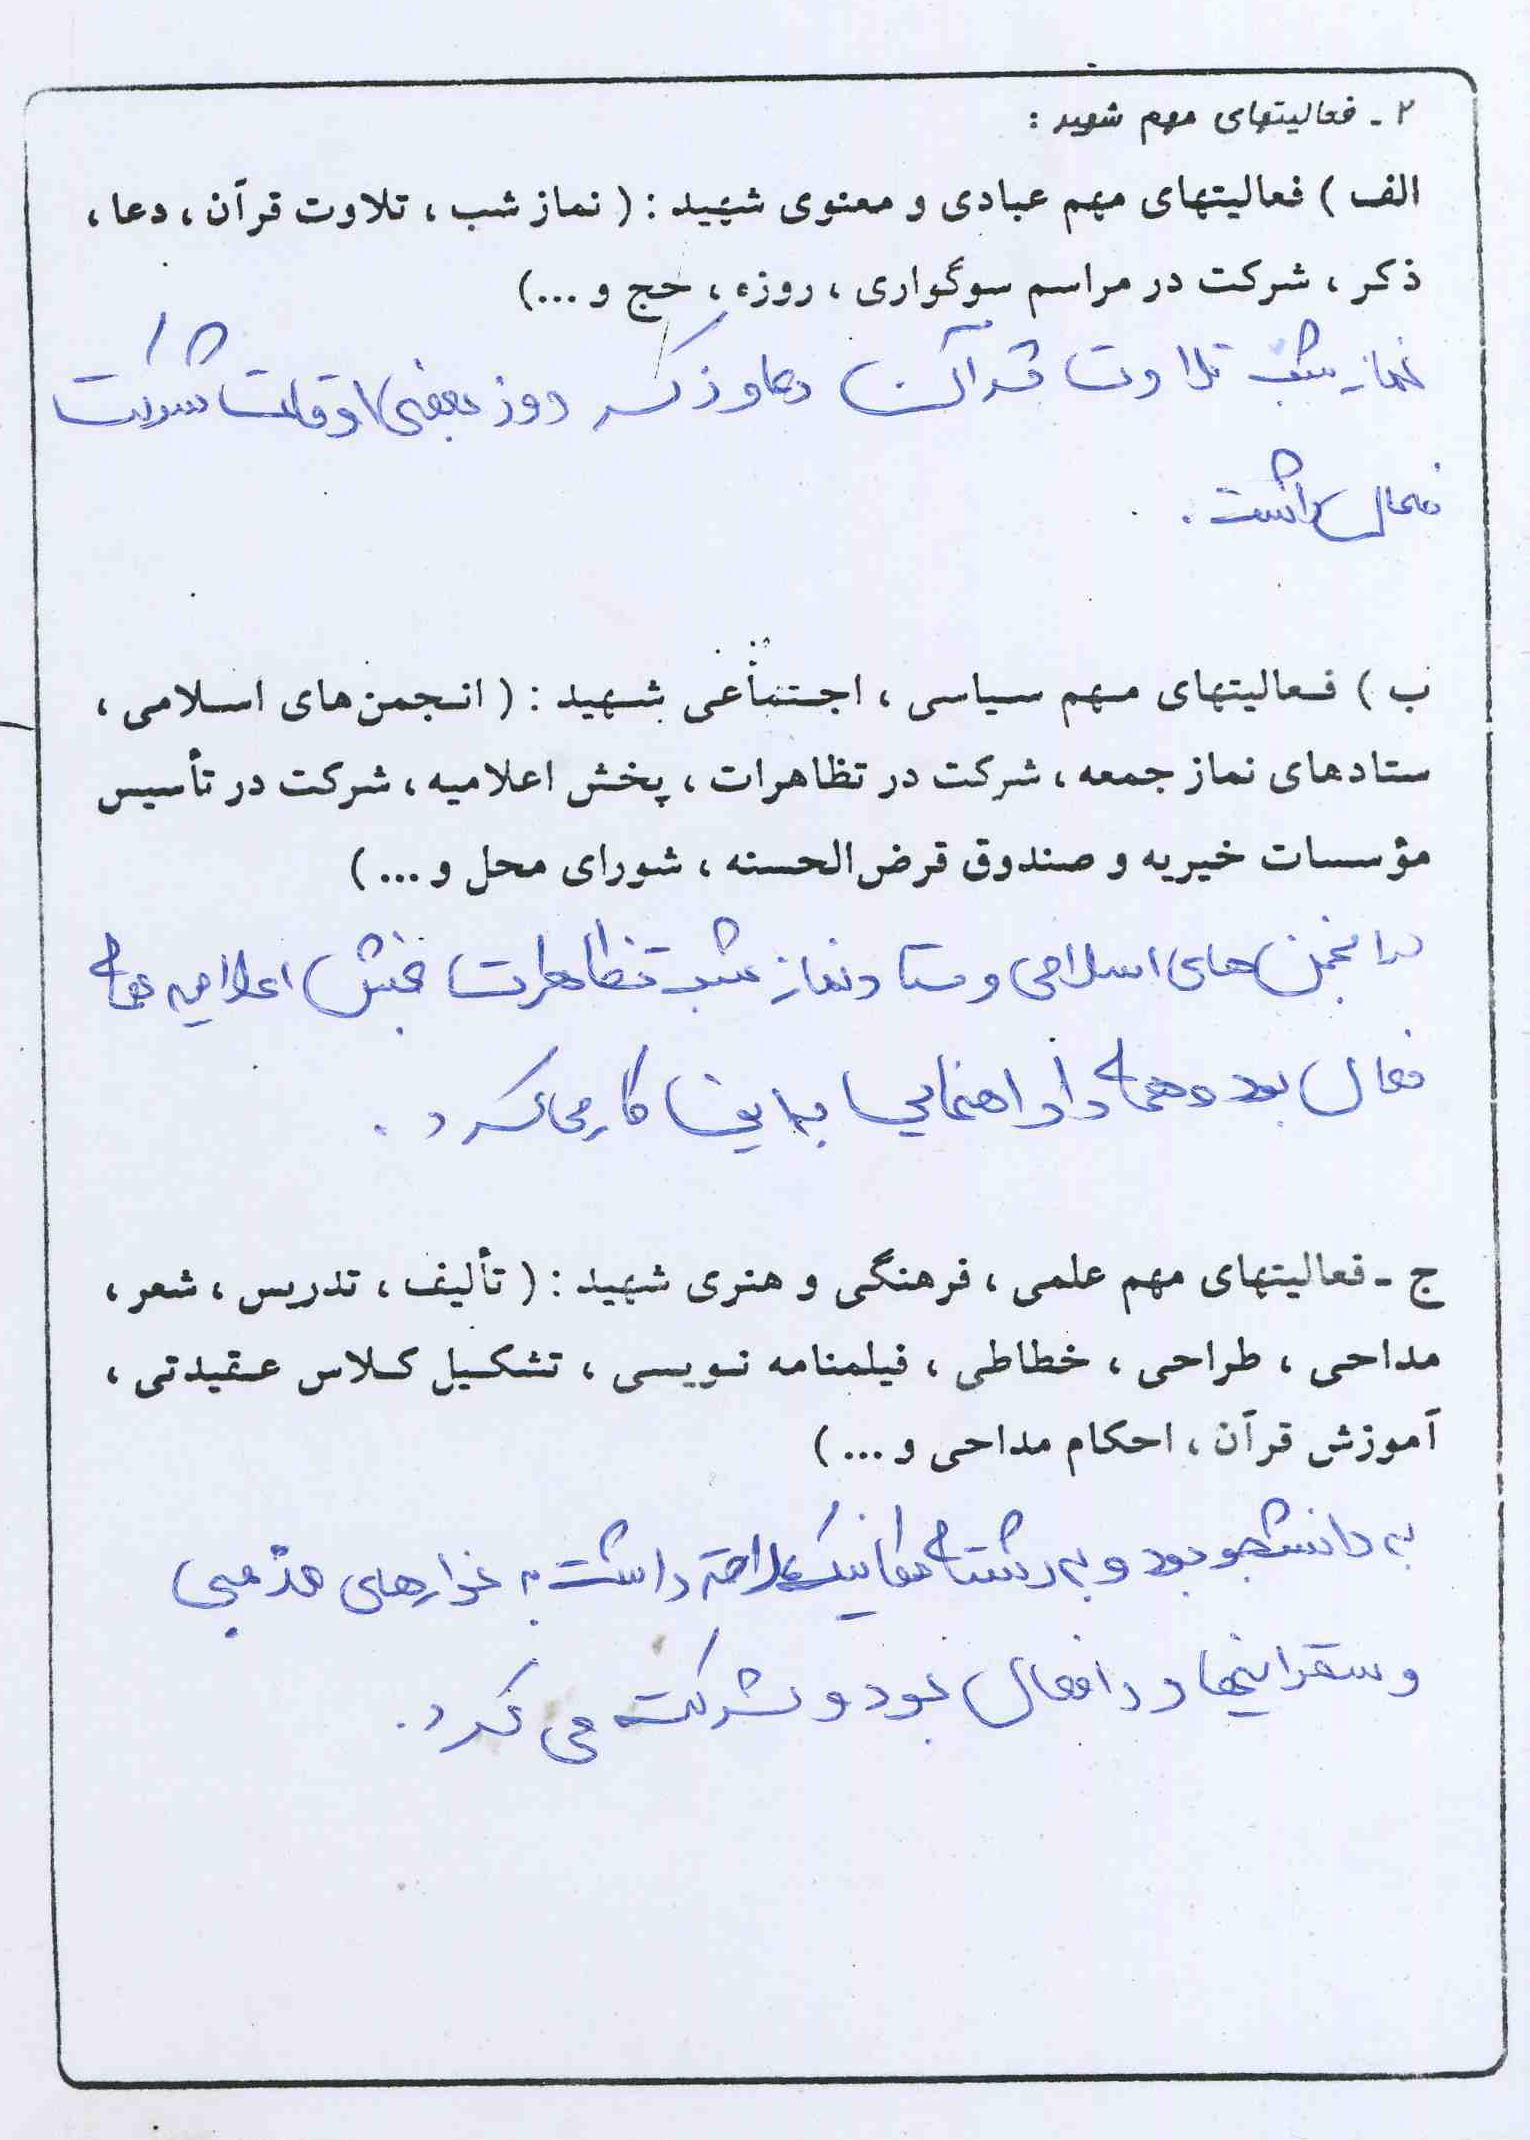 ۲ - فعالیتهای مهم شهید :
الف ) فعالیتهای مهم عبادی و معنوی شهید : ( نماز شب ، تلاوت قرآن ، دعا ،
ذکر ، شرکت در مراسم سوگواری ، روزه ، حج و ...)
نماز شب تلاوت قرآن دعا و ذکر روز بعضی اوقات شرکت
فعال داشت .
ب ) فعالیتهای مهم سیاسی ، اجتماعی شهید : ( انجمن‌های اسلامی ،
ستادهای نماز جمعه ، شرکت در تظاهرات ، پخش اعلامیه ، شرکت در تأسیس
مؤسسات خیریه و صندوق قرض‌الحسنه ، شورای محل و ... )
در انجمن های اسلامی و ستاد نماز شب تظاهرات پخش اعلامیه همه
فعال بود و همه را راهنمایی به این کار می کرد .
ج - فعالیتهای مهم علمی ، فرهنگی و هنری شهید : ( تألیف ، تدریس ، شعر ،
مداحی ، طراحی ، خطاطی ، فیلمنامه نویسی ، تشکیل کلاس عقیدتی ،
آموزش قرآن ، احکام مداحی و ... )
به دانشجو بود و به رشته مکانیک علاقه داشت به نوارهای مذهبی
و سخنرانیها فعال بود و شرکت می کرد .